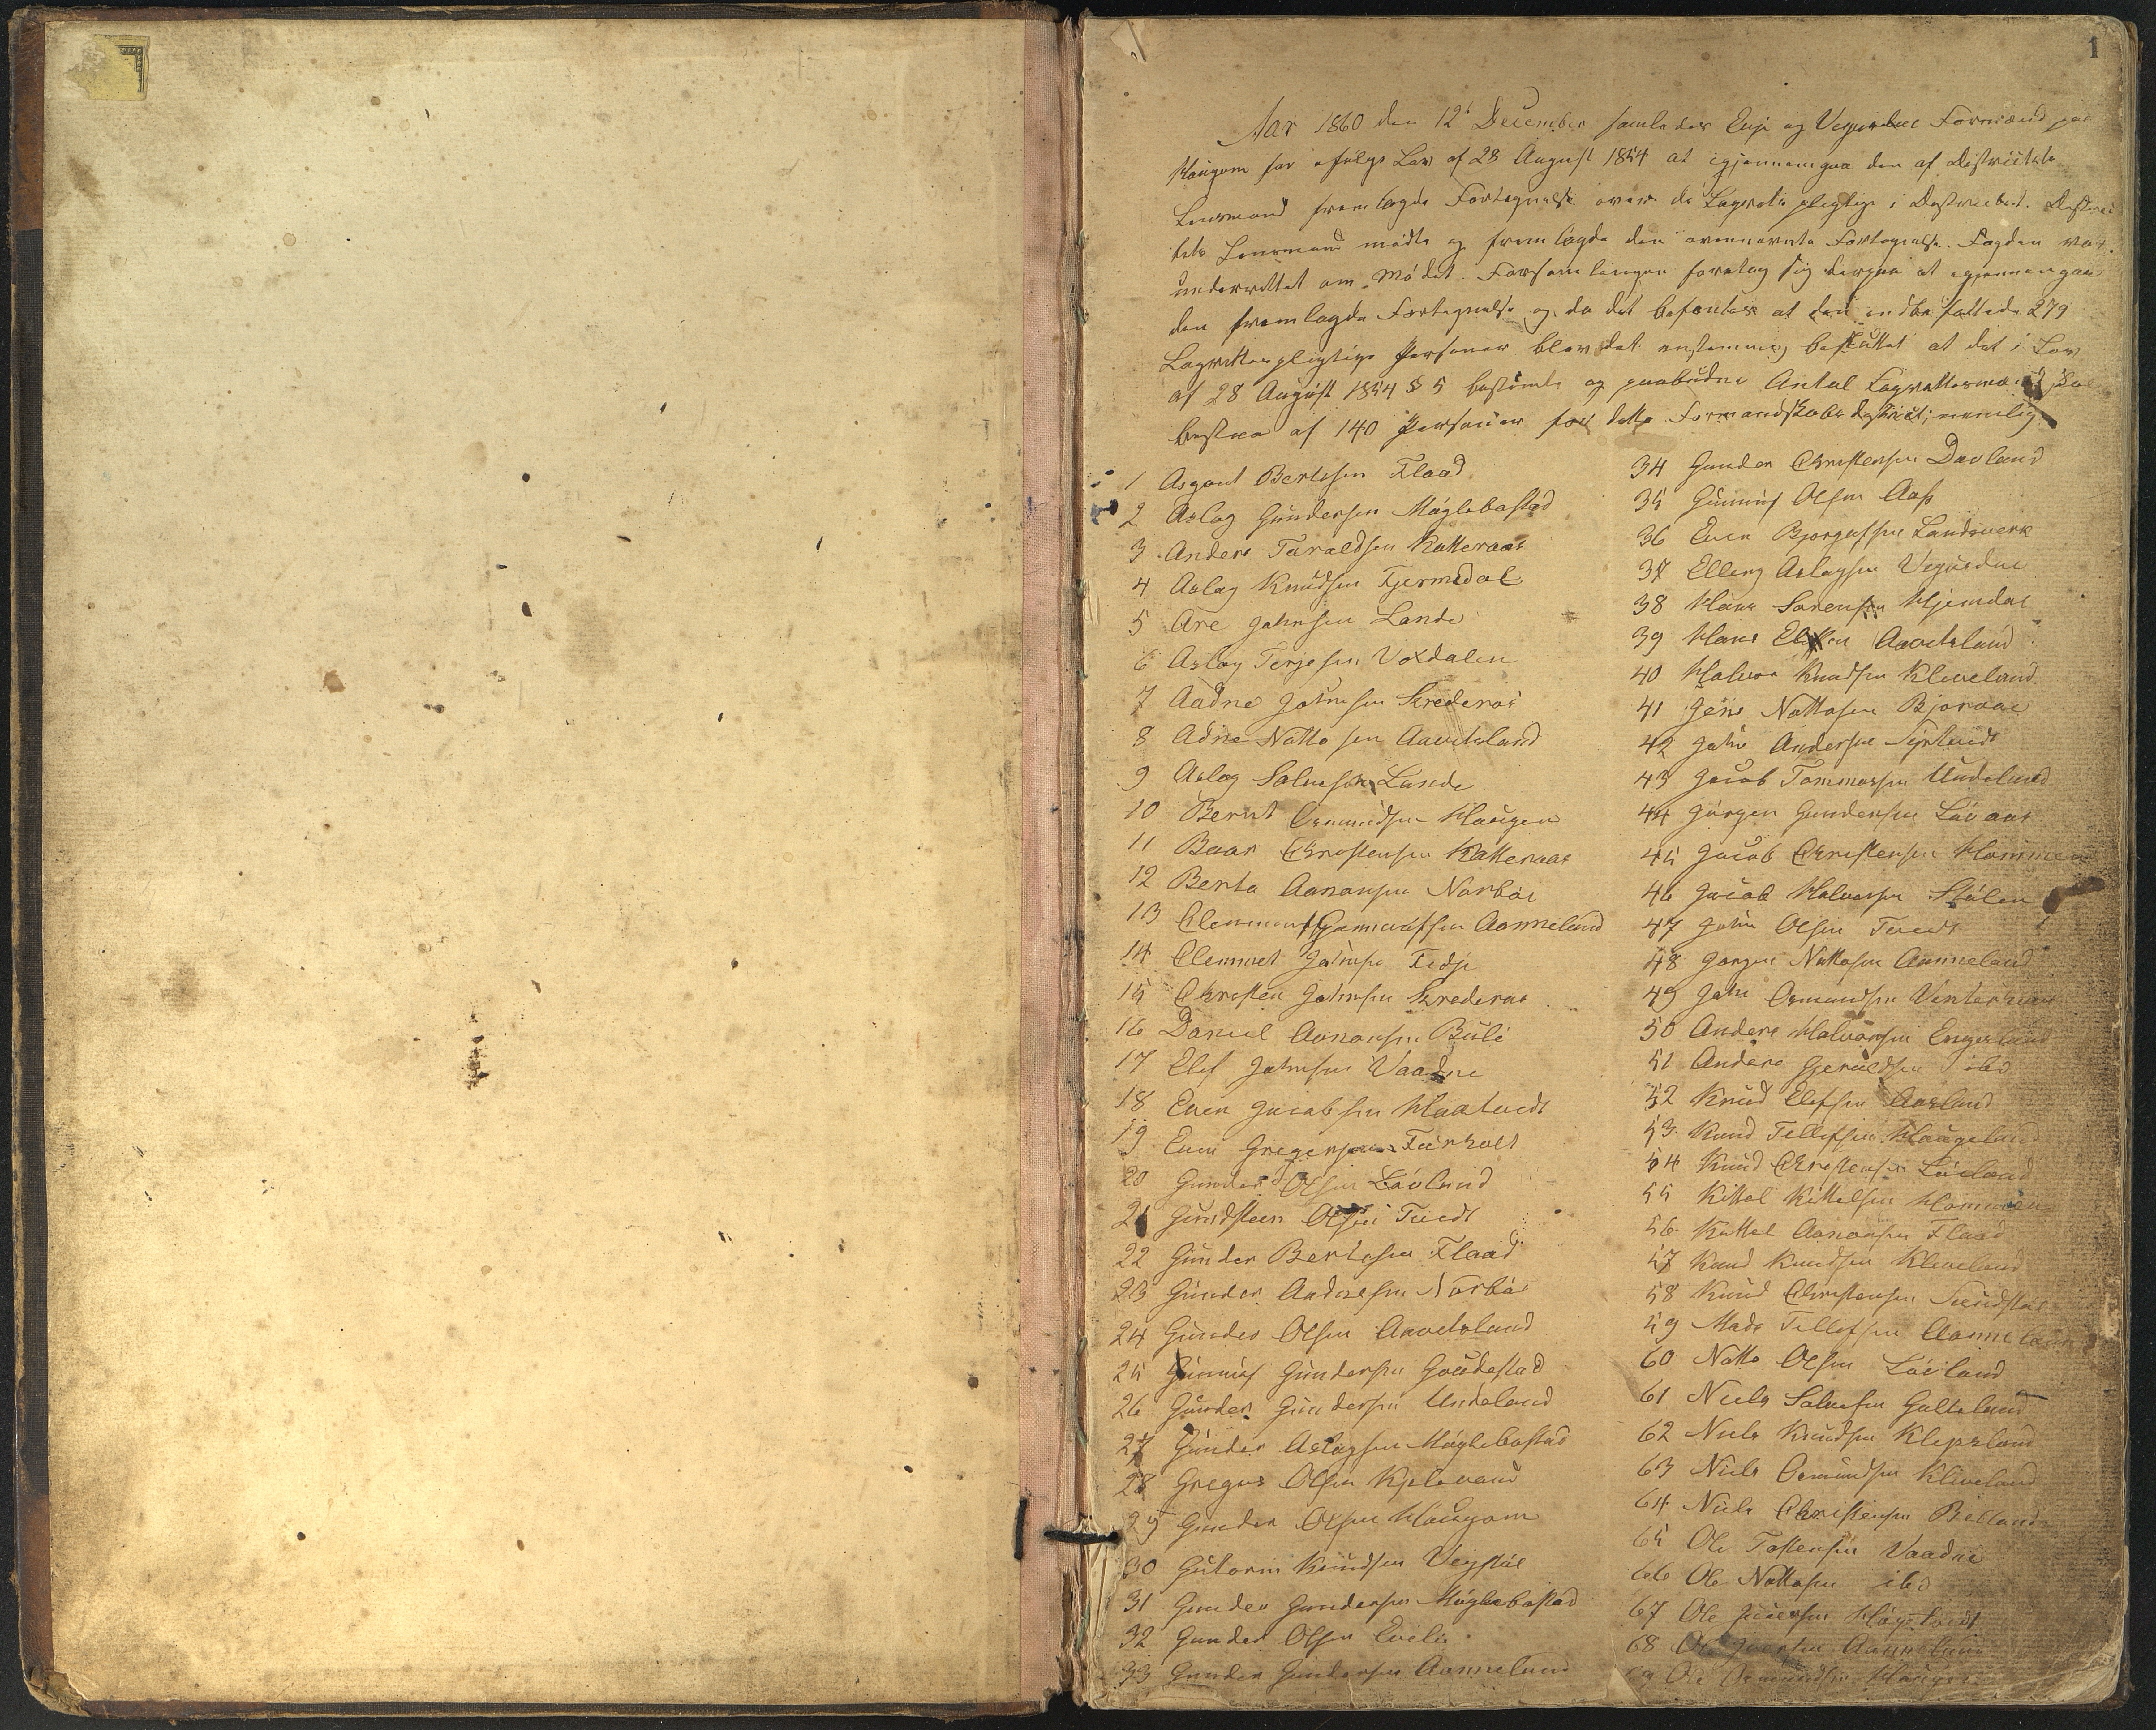 1
Aar 1860 den 12t December samledes Evje og Vegusdal Formænd paa
Haugom for ifølge Lov af 28 August 1854 at igjennemgaa den af Districtets
Lensmand fremlagde Fortegnelse over de Lagrettepligtige i Districtet. Distric
tets Lensmand mødte og fremlagde den ovennævnte Fortegnelse. Fogden var
underrettet om Mødet. Forsamlingen foretog sig derpaa at igjennemgaa
den fremlagde Fortegnelse og da det befantes at den indbefattede 279
Lagrettespligtige Personer blev det enstemmig besluttet at det i Lov
af 28 August 1854 § 5 bestemte og paabudne Antal Lagrettesmænd skal
bestaa af 140 Personer for dette Formandskabsdistrict; nemlig
1 Asgout Bertesen Flaad
2 Aslag Gundersen Møglebostad
3 Anders Taraldsen Katteraas
4 Aslag Knudsen Fjermedal
5 Are Johnsen Lande
6 Aslag Terjesen Voxdalen
7 Aadne Johnsen Skrederas
8 Adne Nottosen Aavitsland
9 Aslag Salvesen Lunde
10 Bernt Osmundsen Haugen
11 Baar Christensen Katteraas
12 Berte Aanonsen Narbøe
13 Clemmet Gunnulfsen Aanneland
14 Clemmet Johnsen Tedje
15 Christen Johnsen Skrederas
16 Daniel Aanonsen Bule
17 Elef Johnsen Vaadne
18 Even Jacobsen Haatvedt
19 Even Gregersen Furholt
20 Gunder Olsen Løvland
21 Gundsteen Olsen Tvedt
22 Gunder Bertesen Flaad
23 Gunder Andresen Narbøe
24 Gunder Olsen Aavitsland
25 Gunnuf Gundersen Goudestad
26 Gunder Gundersen Undeland
27 Gunder Aslagsen Møglebostad
28 Gregus Olsen Kjelevand
29 Gunder Olsen Haugom
30 Gutorm Knudsen Vegstøl
31 Gunder Gundersen Møglebostad
32 Gunder Olsen Evelie
33 Gunder Gundersen Aanneland
34 Gunder Christensen Dovland
35 Gunnuf Olsen Aas
36 Even Bjorgufsen Landsverk
37 Elling Aslagsen Vegusdal
38 Hans Sørensen Hjemdal
39 Hans Elefsen Aavitsland
40 Halvor Knudsen Kleveland
41 Jens Nottosen Bjoraae
42 John Andersen Syrtveit
43 Jacob Tommassen Undeland
44 Jørgen Gundersen Løvaas
45 Jacob Christensen Hommen
46 Jacob Halvorsen Stølen
47 John Olsen Tvedt
48 Jørgen Nottosen Aanneland
49 John Osmundsen
50 Anders Halvorsen Engesland
51 Anders Gjeruldsen ibd
52 Knud Elefsen Aasland
53 Knud Tellefsen Haugeland
54 Knud Christensen Løvland
55 Kittel Kittelsen Hommen
56 Kittel Aanonsen Flaad
57 Knud Knudsen Kleveland
58 Knud Christensen Tveidstøl
59 Mads Tellefsen Aanneland
60 Notto Olsen Løvland
61 Niels Salvesen Galteland
62 Niels Knudsen Klepsland
63 Niels Osmundsen Kleveland
64 Niels Christensen Birkeland
65 Ole Tostensen Vaadne
66 Ole Nottosen ibd
67 Ole Iversen
68 Ole Aanneland
69 Ole Osmundsen Haugen